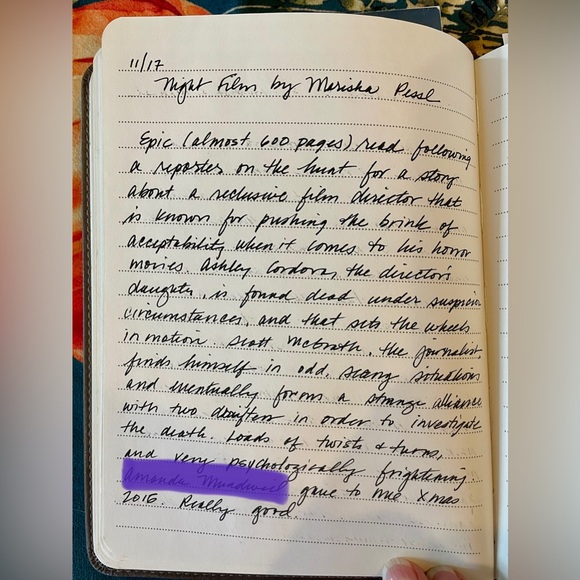 11/17
Night Film by Marisha Pessl
Epic (almost 600 pages) read following
a reporter on the hunt for a story
about a reclusive film director that
is known for pushing the brink of
acceptability when it comes to his horror
movies. Ashley Cordova, the director's
daughter, is found dead under suspicious
circumstances, and that sets the wheels
in motion. Scott McGrath, the journalist,
finds himself in odd, scary situations
and eventually forms a strange alliance
with two drifters in order to investigate
the death. Loads of twists & turns,
and very psychologically frightening.
gave to me Xmas
2016. Really good.